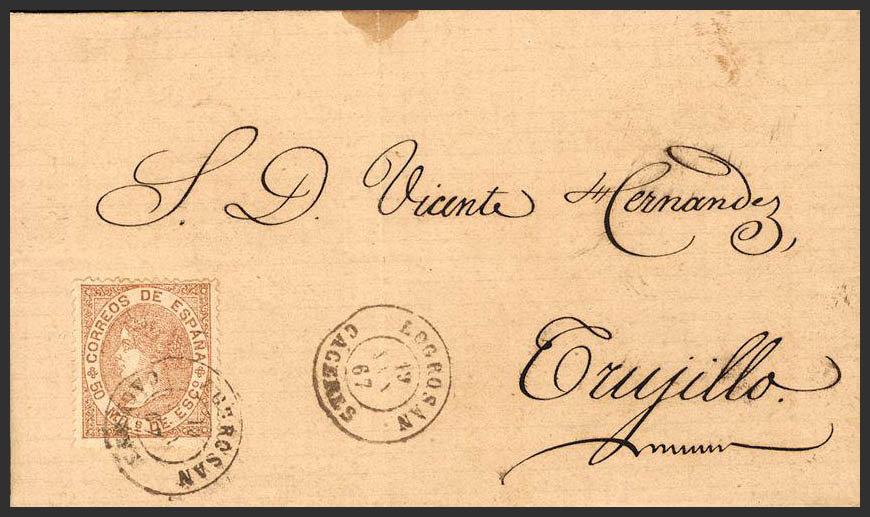 S. D. Vicente Hernandez,
Trujillo.
CORREOS DE ESPAÑA
50 MILS DE ESCO
LOGROSAN
CACERES
19
67
LOGROSAN